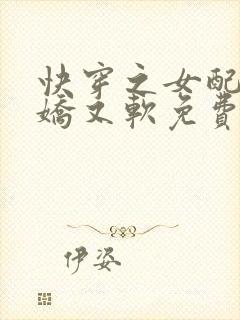 快穿之女配
娇又软免费
伊姿